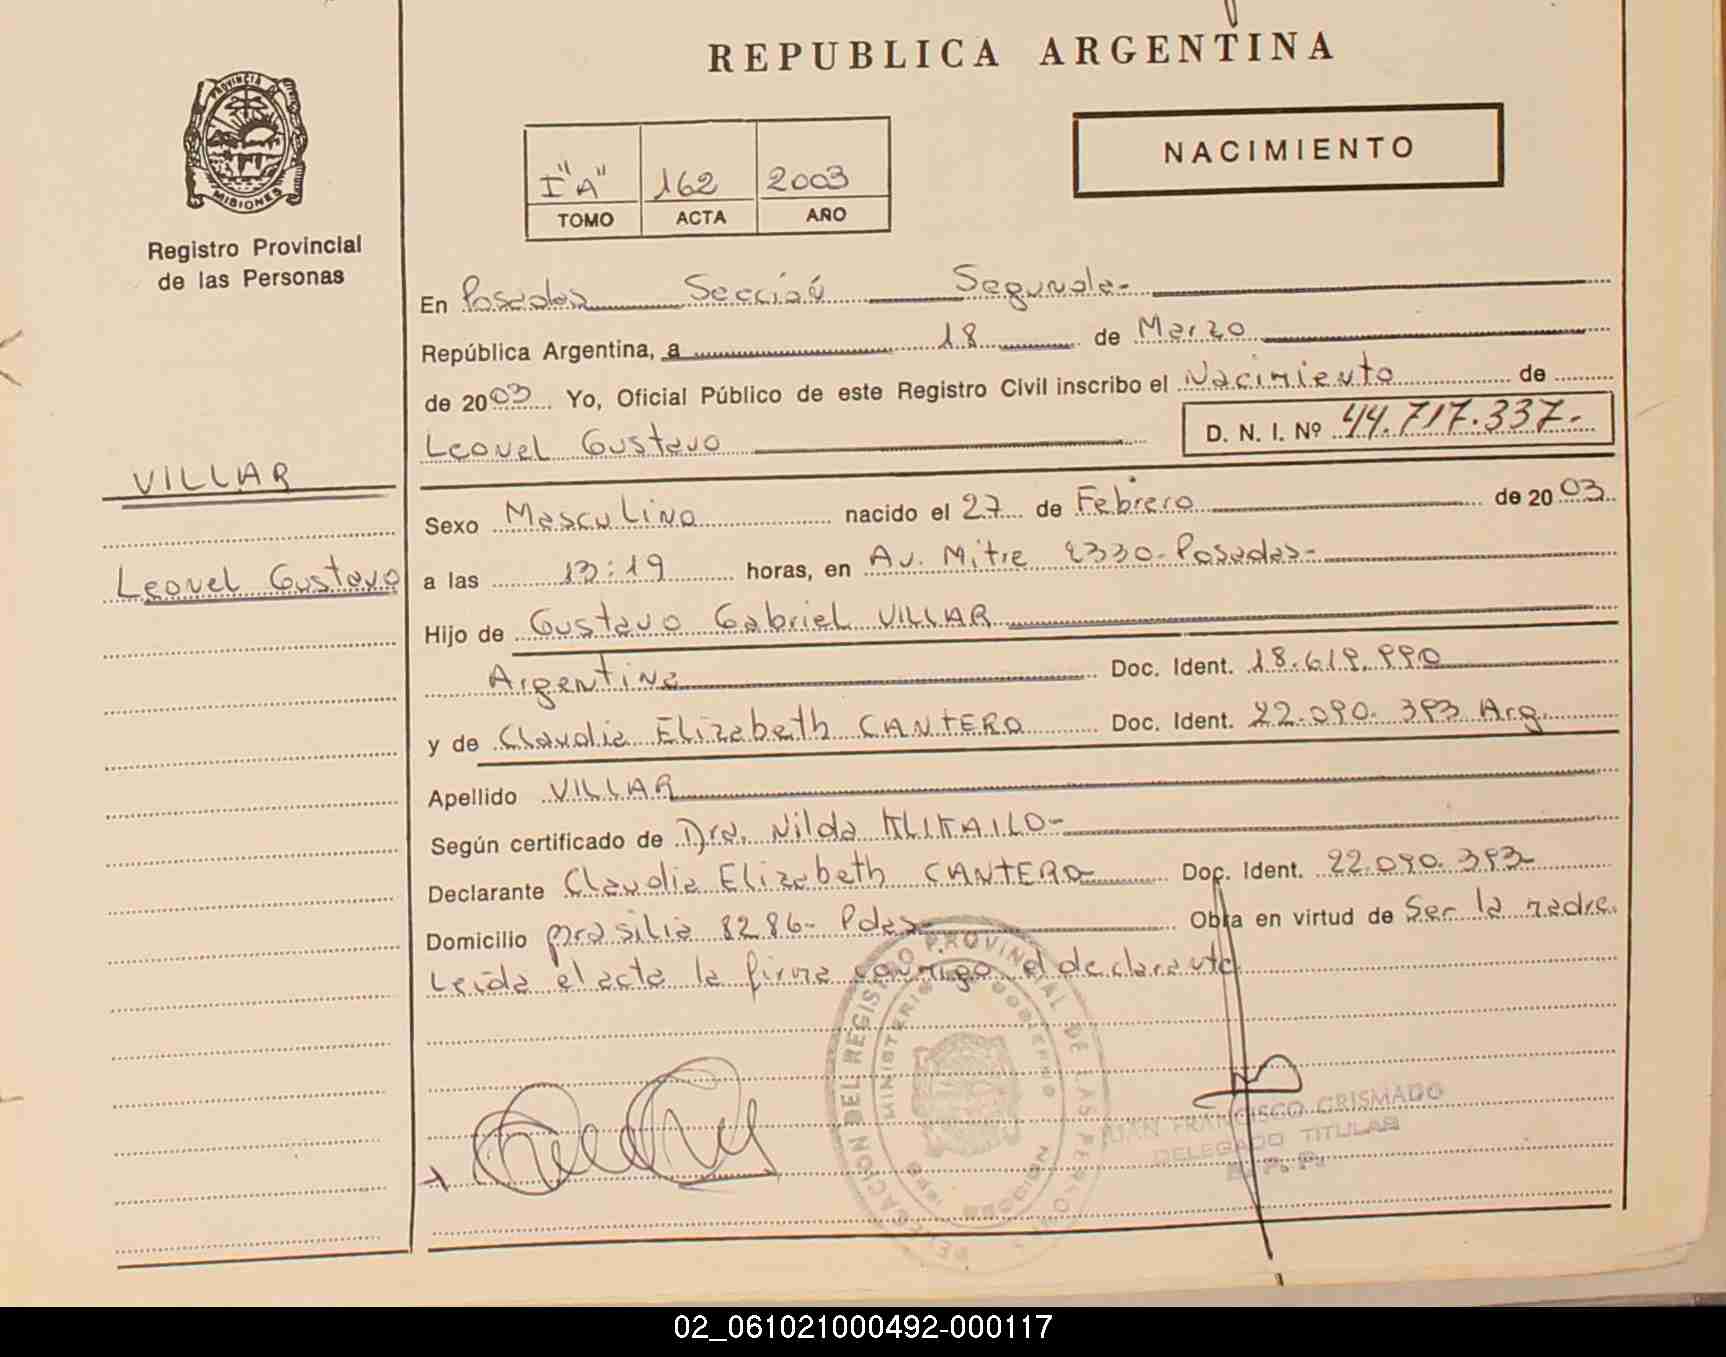 REPUBLICA ARGENTINA
PROVINCIA DE
MISIONES
Registro Provincial
de las Personas
NACIMIENTO
I "A" 162 2003
TOMO ACTA AÑO
En Posadas Sección Segunda-
República Argentina, a 18 de Marzo
de 2003 Yo, Oficial Público de este Registro Civil inscribo el Nacimiento de
Leonel Gustavo D. N. I. Nº 44.717.337.-
VILLAR
Leonel Gustavo
Sexo Masculino nacido el 27 de Febrero de 2003
a las 13:19 horas, en Av. Mitre 2330- Posadas-
Hijo de Gustavo Gabriel VILLAR
Argentina Doc. Ident. 18.619.990
y de Claudia Elizabeth CANTERO Doc. Ident. 22.090.393 Arg.
Apellido VILLAR
Según certificado de Dra. Nilda KLIKAILO-
Declarante Claudia Elizabeth CANTERO Doc. Ident. 22.090.393-
Domicilio brasilia 8286- Pdas- Obra en virtud de Ser la madre.
Leída el acta la firma conmigo el declarante
DELEGACION DEL REGISTRO PROVINCIAL DE LAS PERSONAS
MINISTERIO DE GOBIERNO
MISIONES
JUAN FRANCISCO GRISMADO
DELEGADO TITULAR
R. P. P.
02_061021000492-000117